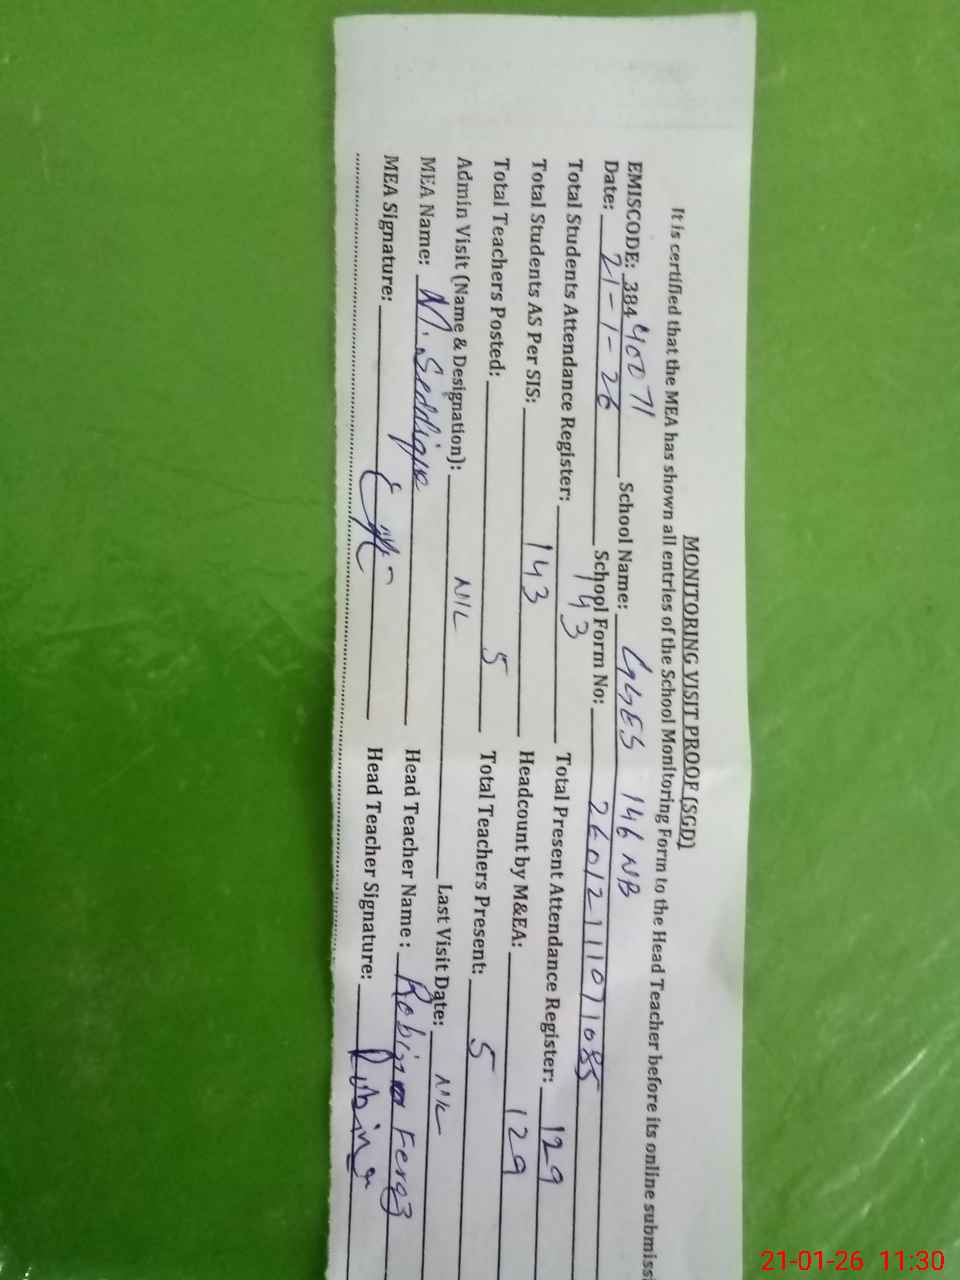 MONITORING VISIT PROOF (SGD)
It is certified that the MEA has shown all entries of the School Monitoring Form to the Head Teacher before its online submiss
EMISCODE: 38440071 School Name: GGES 146 NB
Date: 21-1-26 School Form No: 26012111071085
Total Students Attendance Register: 143 Total Present Attendance Register: 129
Total Students AS Per SIS: 143 Headcount by M&EA: 129
Total Teachers Posted: 5 Total Teachers Present: 5
Admin Visit (Name & Designation): NIL Last Visit Date: NIL
MEA Name: M. Seddique Head Teacher Name: Robina Feroz
MEA Signature: Head Teacher Signature: Rubina
21-01-26 11:30